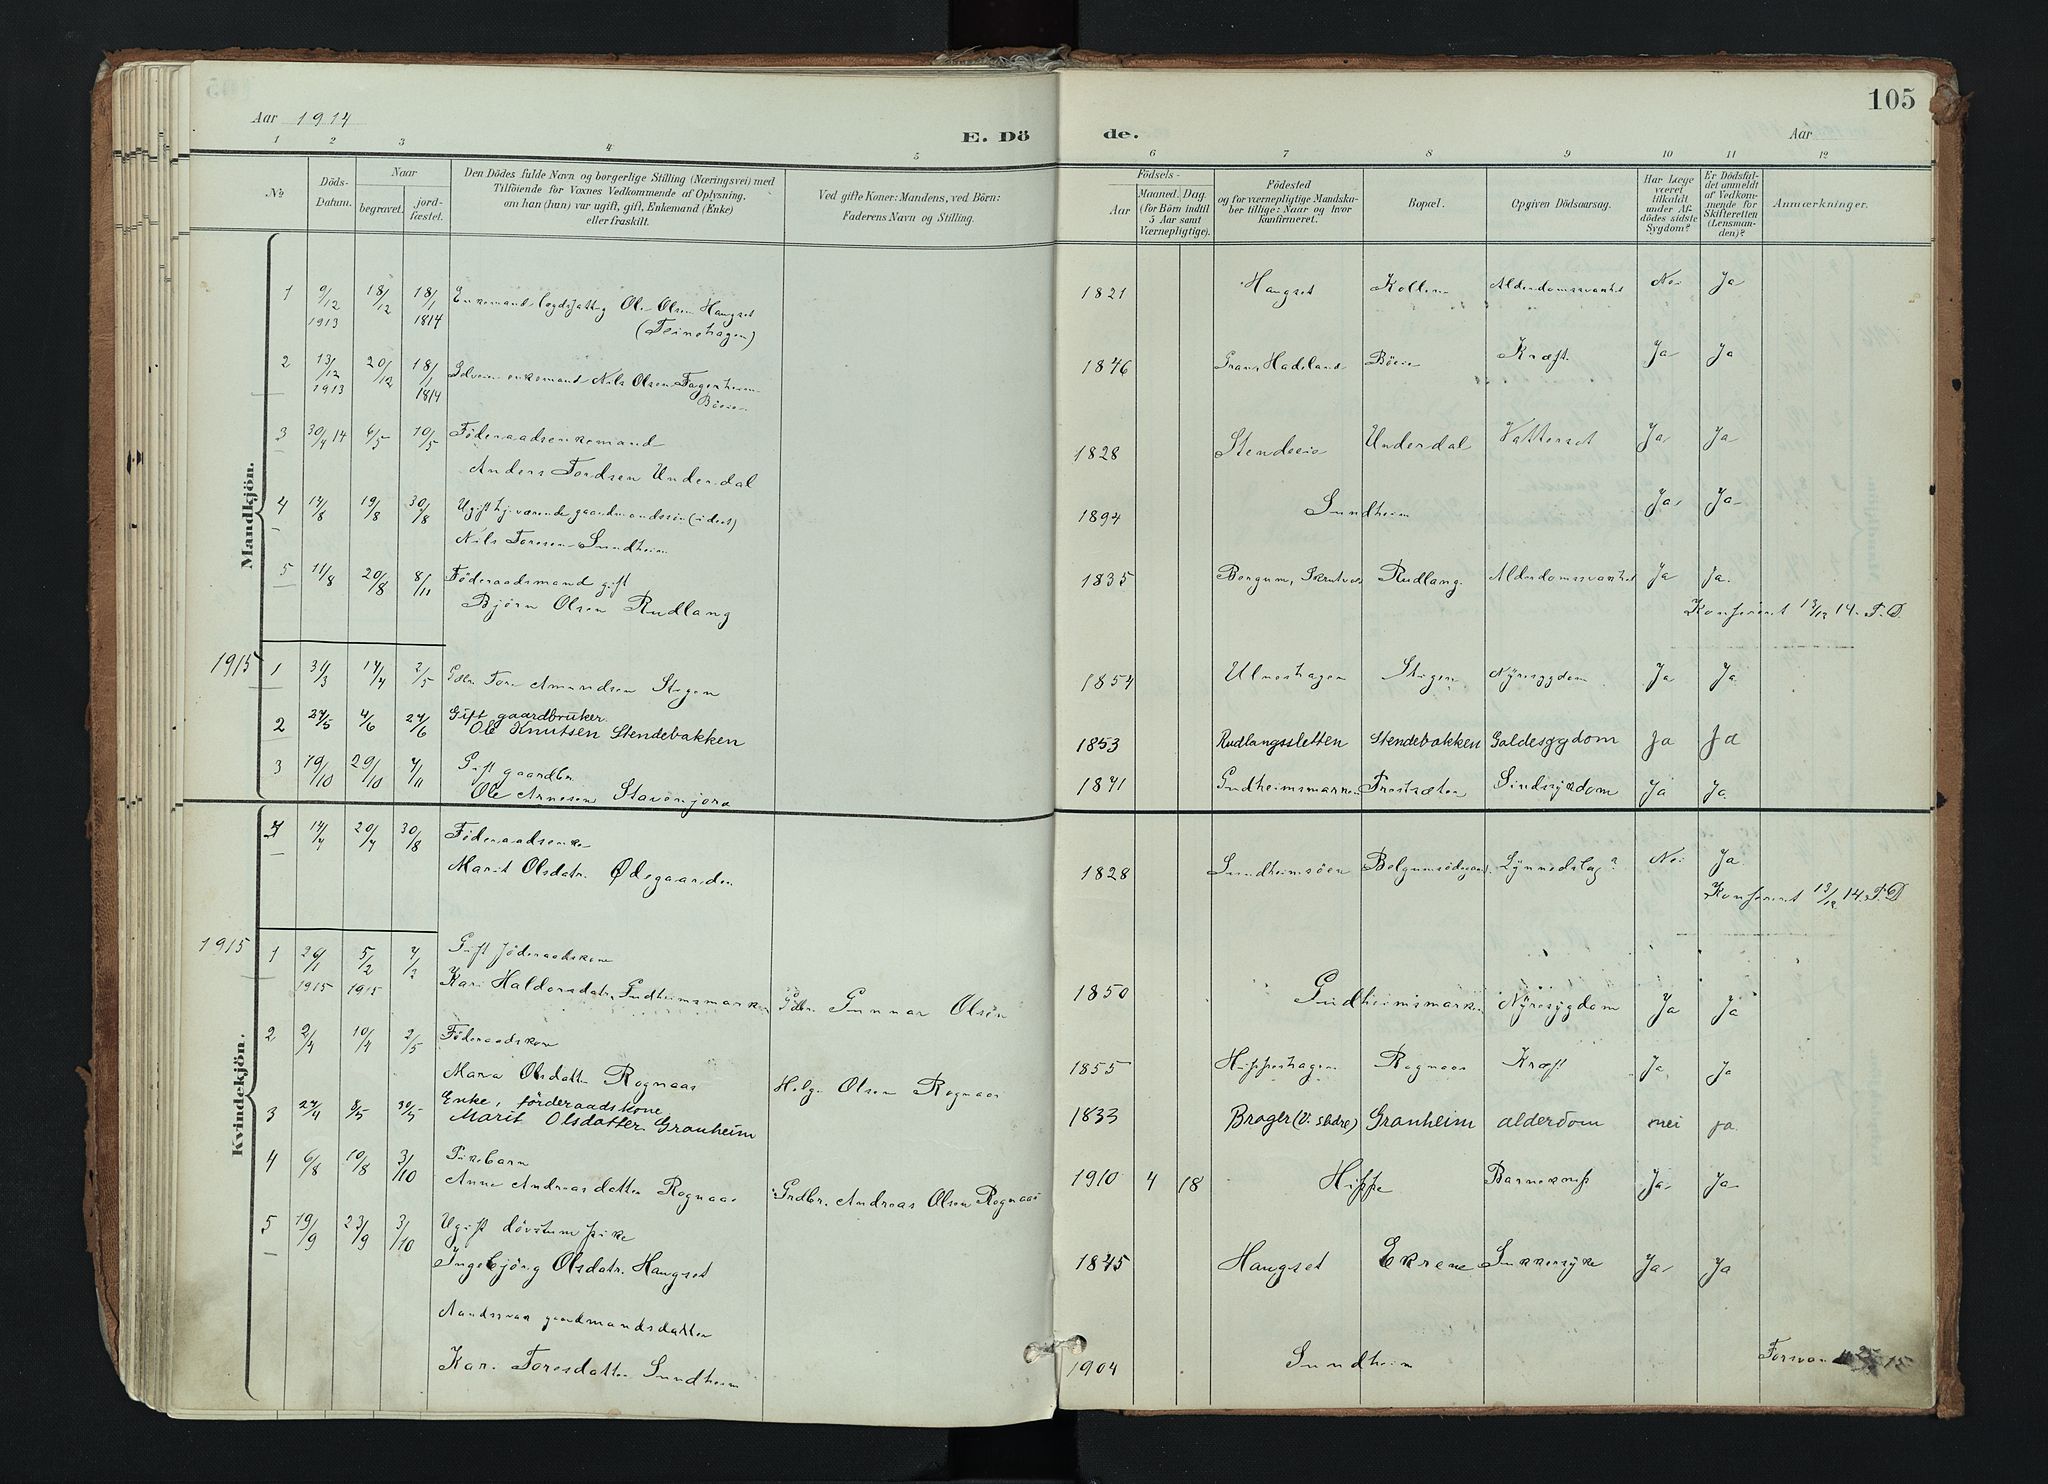 105
Aar 1914
E. Dö
de.
Aar
1 2 3 4 5 6 7 8 9 10 11 12
No.
Döds-Datum.
Naar
begravet.
jord-fæstet.
Den Dödes fulde Navn og borgerlige Stilling (Næringsvei) med
Tilföiende for Voxnes Vedkommende af Oplysning,
om han (hun) var ugift, gift, Enkemand (Enke)
eller fraskilt.
Ved gifte Koner: Mandens, ved Börn:
Faderens Navn og Stilling.
Födsels-
Aar
Maaned. Dag.
(for Börn indtil
5 Aar samt
Værnepligtige).
Födested
og for værnepligtige Mandska-
ber tillige: Naar og hvor
konfirmeret.
Bopæl.
Opgiven Dödsaarsag.
Har Læge
været
tilkaldt
under Af-
dödes sidste
Sygdom?
Er Dödsfal-
det anmeldt
af Vedkom-
mende for
Skifteretten
(Lensman-
den)?
Anmærkninger.
Mandkjön.
1 9/12 1913 18/12 18/1 1814 Enkemand Ole Olsen Haugset 1821 Haugset Nei Ja
2 13/12 1913 20/12 18/1 1814 enkemand Nils Olsen Fagerheim 1846 Gran, Hadeland Kræft Ja Ja
3 30/4 14 6/5 10/5 Föderaadsenkemand 1828 Underdal Vattersot Ja Ja
Anders Tordsen Underdal
4 14/8 19/8 30/8 Ugift gaardmandssön 1894 Sundheim Ja Ja
Nils Toresen Sundheim
5 11/8 20/8 8/11 Föderaadsmand gift 1835 Rudlang Ja Ja.
Björn Olsen Rudlang
Konfereret 13/12 14. T.D.
1915
1 31/3 14/4 2/5 Tore Amundsen Stugen 1854 Ulneshagen Stugen Nyresygdom Ja Ja
2 27/5 4/6 27/6 Gift gaardbruker
Ole Knutsen Stendebakken 1853 Rudlangssletten Stendebakken Galdesygdom Ja Ja
3 19/10 29/10 7/11 Gift gaardbr.
Ole Arnesen 1841 Sindssykdom Ja Ja
Kvindekjön.
14/4 20/4 30/8 Föderaadsenke
Marit Olsdatr. Ødegaarden 1828 Nei Ja
Konfereret 13/12 14. T.D
1915
1 26/1 1915 5/2 1915 Gift föderaadskone
Kari Haldorsdatr. Gudheimsmarken Gunnar Olsen 1850 Gudheimsmarken Nyresygdom Ja Ja
2 2/4 10/4 2/5 Föderaadskone
Olsdatter Rognaas Helge Olsen Rognaas 1855 Hippeshagen Rognaas Kræft Ja Ja
3 27/4 8/5 30/5 Enke, förderaadskone
Marit Olsdatter Granheim 1833 Granheim alderdom nei ja
4 6/8 10/8 3/10 Pikebarn
Anne Andreasdatter Rognaas Grdbr. Andreas Olsen Rognaas 1910 4 18 Hippe Ja Ja
5 19/9 23/9 3/10 Ugift dövstum pike
Ingebjörg Olsdatr. Haugset 1845 Haugset Ekrene Sukkersyke Ja Ja
Aandssvak gaardmandsdatter
Kari Toresdatter Sundheim 1904 Sundheim